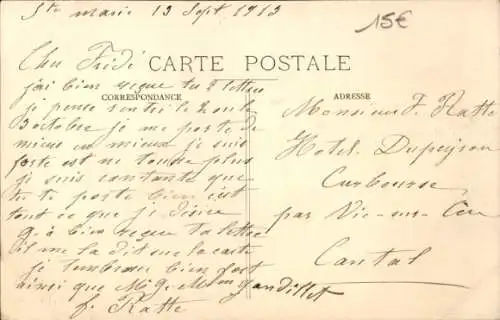 Ste Marie 13 Sept 1913
15€
CARTE POSTALE
CORRESPONDANCE
ADRESSE
Cher Frédé
j'ai bien reçue ta lettre
je pense
3 octobre je me porte de
mieux en mieux je suis
forte est ne tousse plus
je suis contante que
tu te porte bien c'est
tout ce que je désire
G. à bien reçue ta lettre
il me la dit sur la carte
je t'embrasse bien fort
ainsi que Mr & Mme Gandillet
f. Ratte
Monsieur F. Ratte
Hotel Dupeyron
Curbourse
par Vic-sur-Cère
Cantal